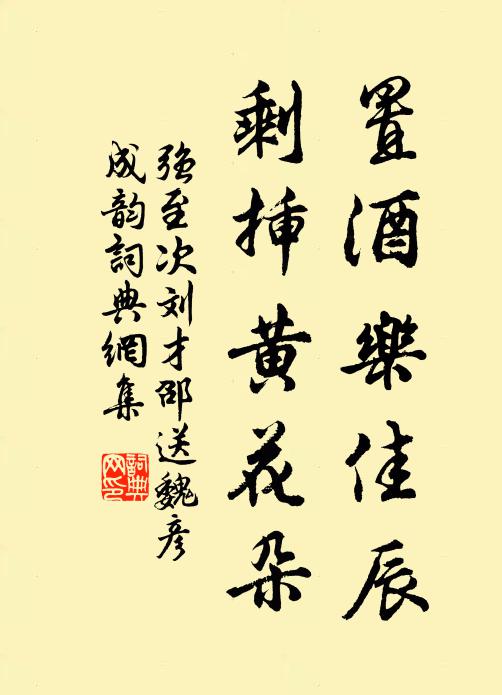 置酒樂佳辰
剩插黄花朵
强至次刘才邵送魏彦
成韵詞典網集
詞典
网印